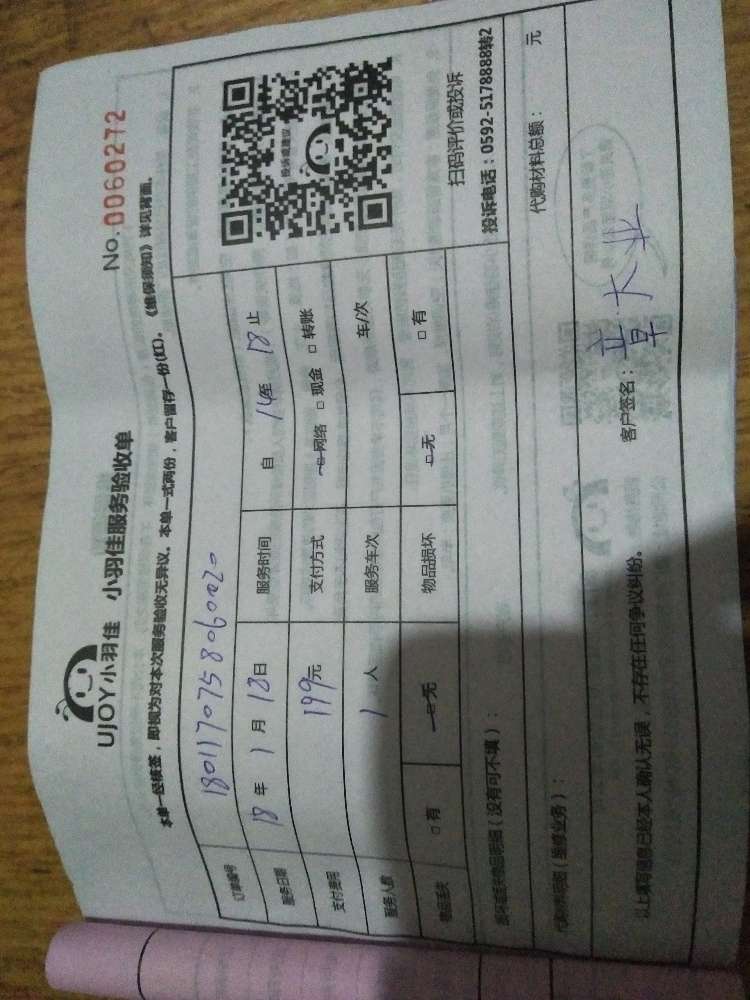 UJOY小羽佳 小羽佳服务验收单
No.0060272
本单一经核签，即视为对本次服务验收无异议。本单一式两份，客户留存一份(红)。《维保须知》详见背面。
订单编号 1801170758060020
服务日期 18年 1月 18日 服务时间 自 14至 18止
支付费用 199元 支付方式 □网络 □现金 □转账
服务人数 1人 服务车次 车/次
物品丢失 □有 □无 物品损坏 □无 □有
投诉或建议
扫码评价或投诉
投诉电话：0592-5178888转2
损坏或丢失物品明细（没有可不填）：
代购材料明细（维修业务）： 代购材料总额： 元
以上填写信息已经本人确认无误，不存在任何争议纠纷。 客户签名：章大业